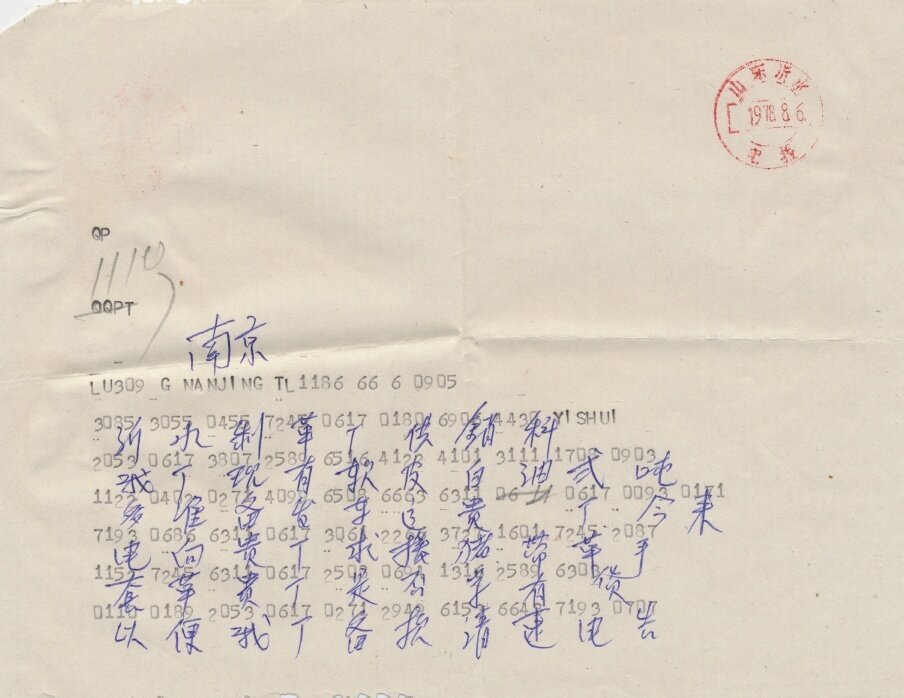 山东沂水
1978.8.6.
电报
QP
1110
QQPT
南京
LU309 G NANJING TL1186 66 6 0905
3085 3055 0455 7245 0617 0180 6906 4430 YISHUI
沂水制革厂供销科
2053 0617 3807 2589 6516 4122 4101 3111 1708 0903
我厂现有软皮白油弍吨
1122 0402 0271 4099 6508 6663 6311 0617 0093 0171
准备发车 贵厂今来
7193 0686 6311 0617 3061 3724 1601 7245 2087
电向贵厂求援猪 带革手
1152 7245 6311 0617 2508 0694 131 2589 6303
套革贵厂是否 有货
0110 0189 2053 0617 0271 2942 615 664 7193 0707
以便我厂备 请速电告